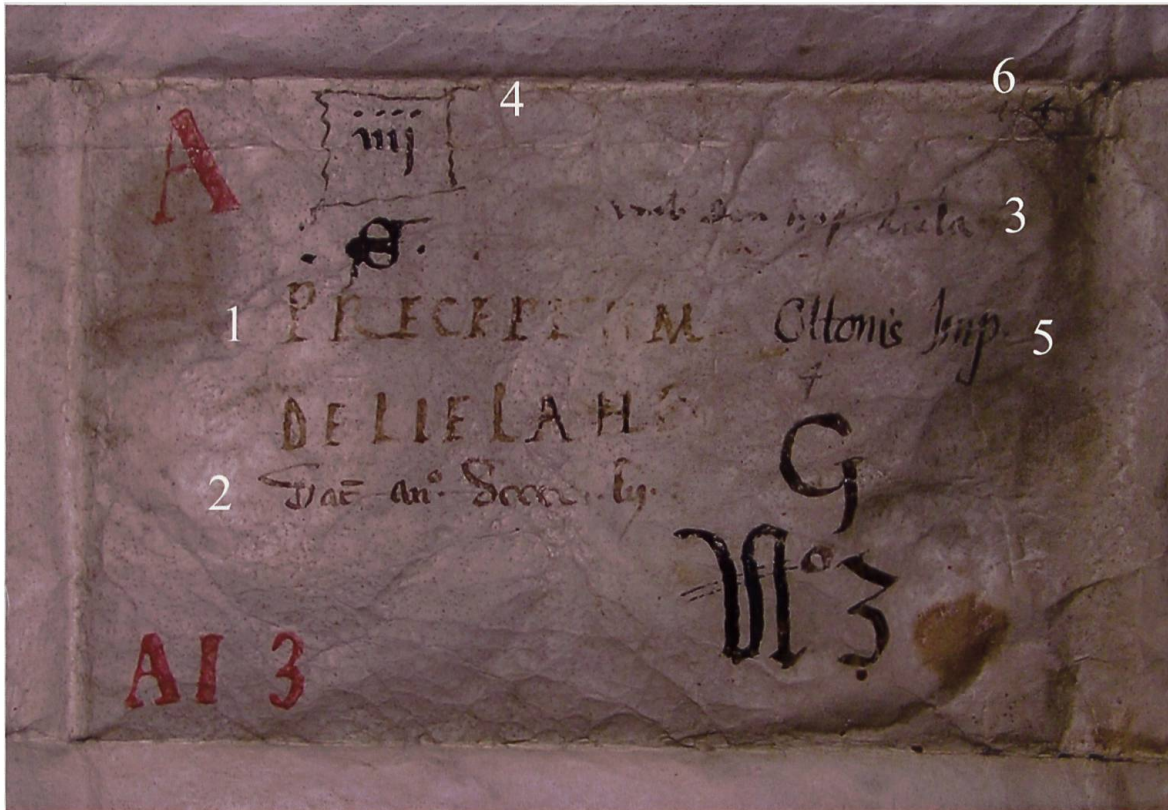 6
4
A
iiij
3
1
PRECEPTUM Ottonis Imp.
5
DE LIELAHA
G
2
Dat an° Dcccc lij.
N° 3
AI 3